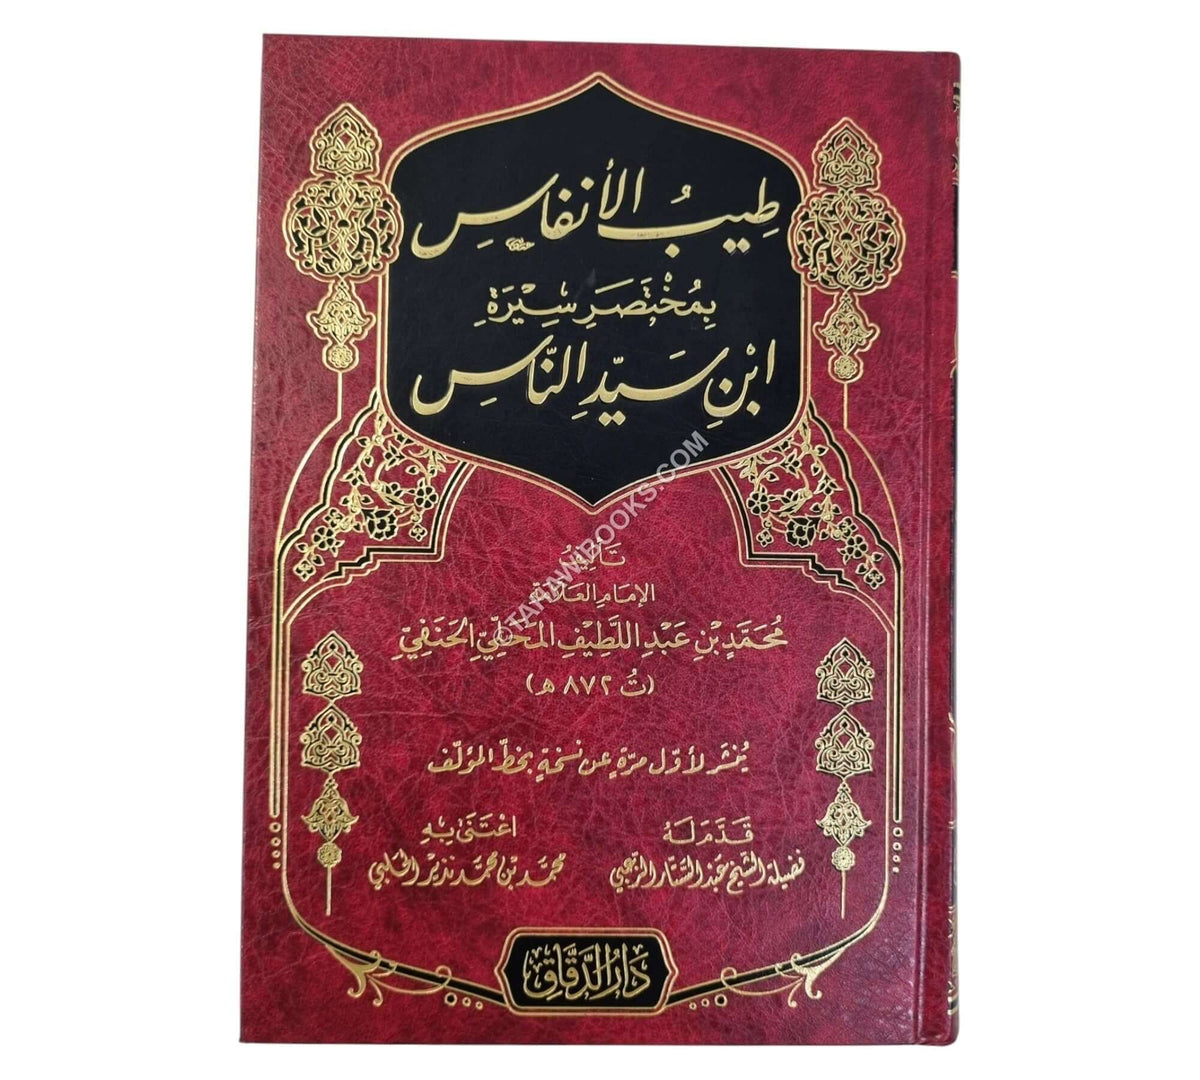 طِيبُ الأنفاس
بِمُخْتَصَرِ سِيْرَةِ
ابْنِ سَيِّدِ النَّاسِ
تَأليفُ
الإمَامِ العَلَّامَةِ
مُحَمَّدِ بْنِ عَبْدِ اللَّطِيْفِ المَحَلِّيِّ الحَنَفِيِّ
(تُ ٨٧٢ هـ)
يُنشر لأوّل مرّةٍ عن نسخةٍ بخطّ المؤلّف
قَدَّمَ لَهُ
فضيلة الشيخ عبد الستار المرعبي
اعْتَنَى بِهِ
محمد بن محمد نذير الحلبي
دَارُ الدَّقَّاقِ
©TAHAWIBOOKS.COM